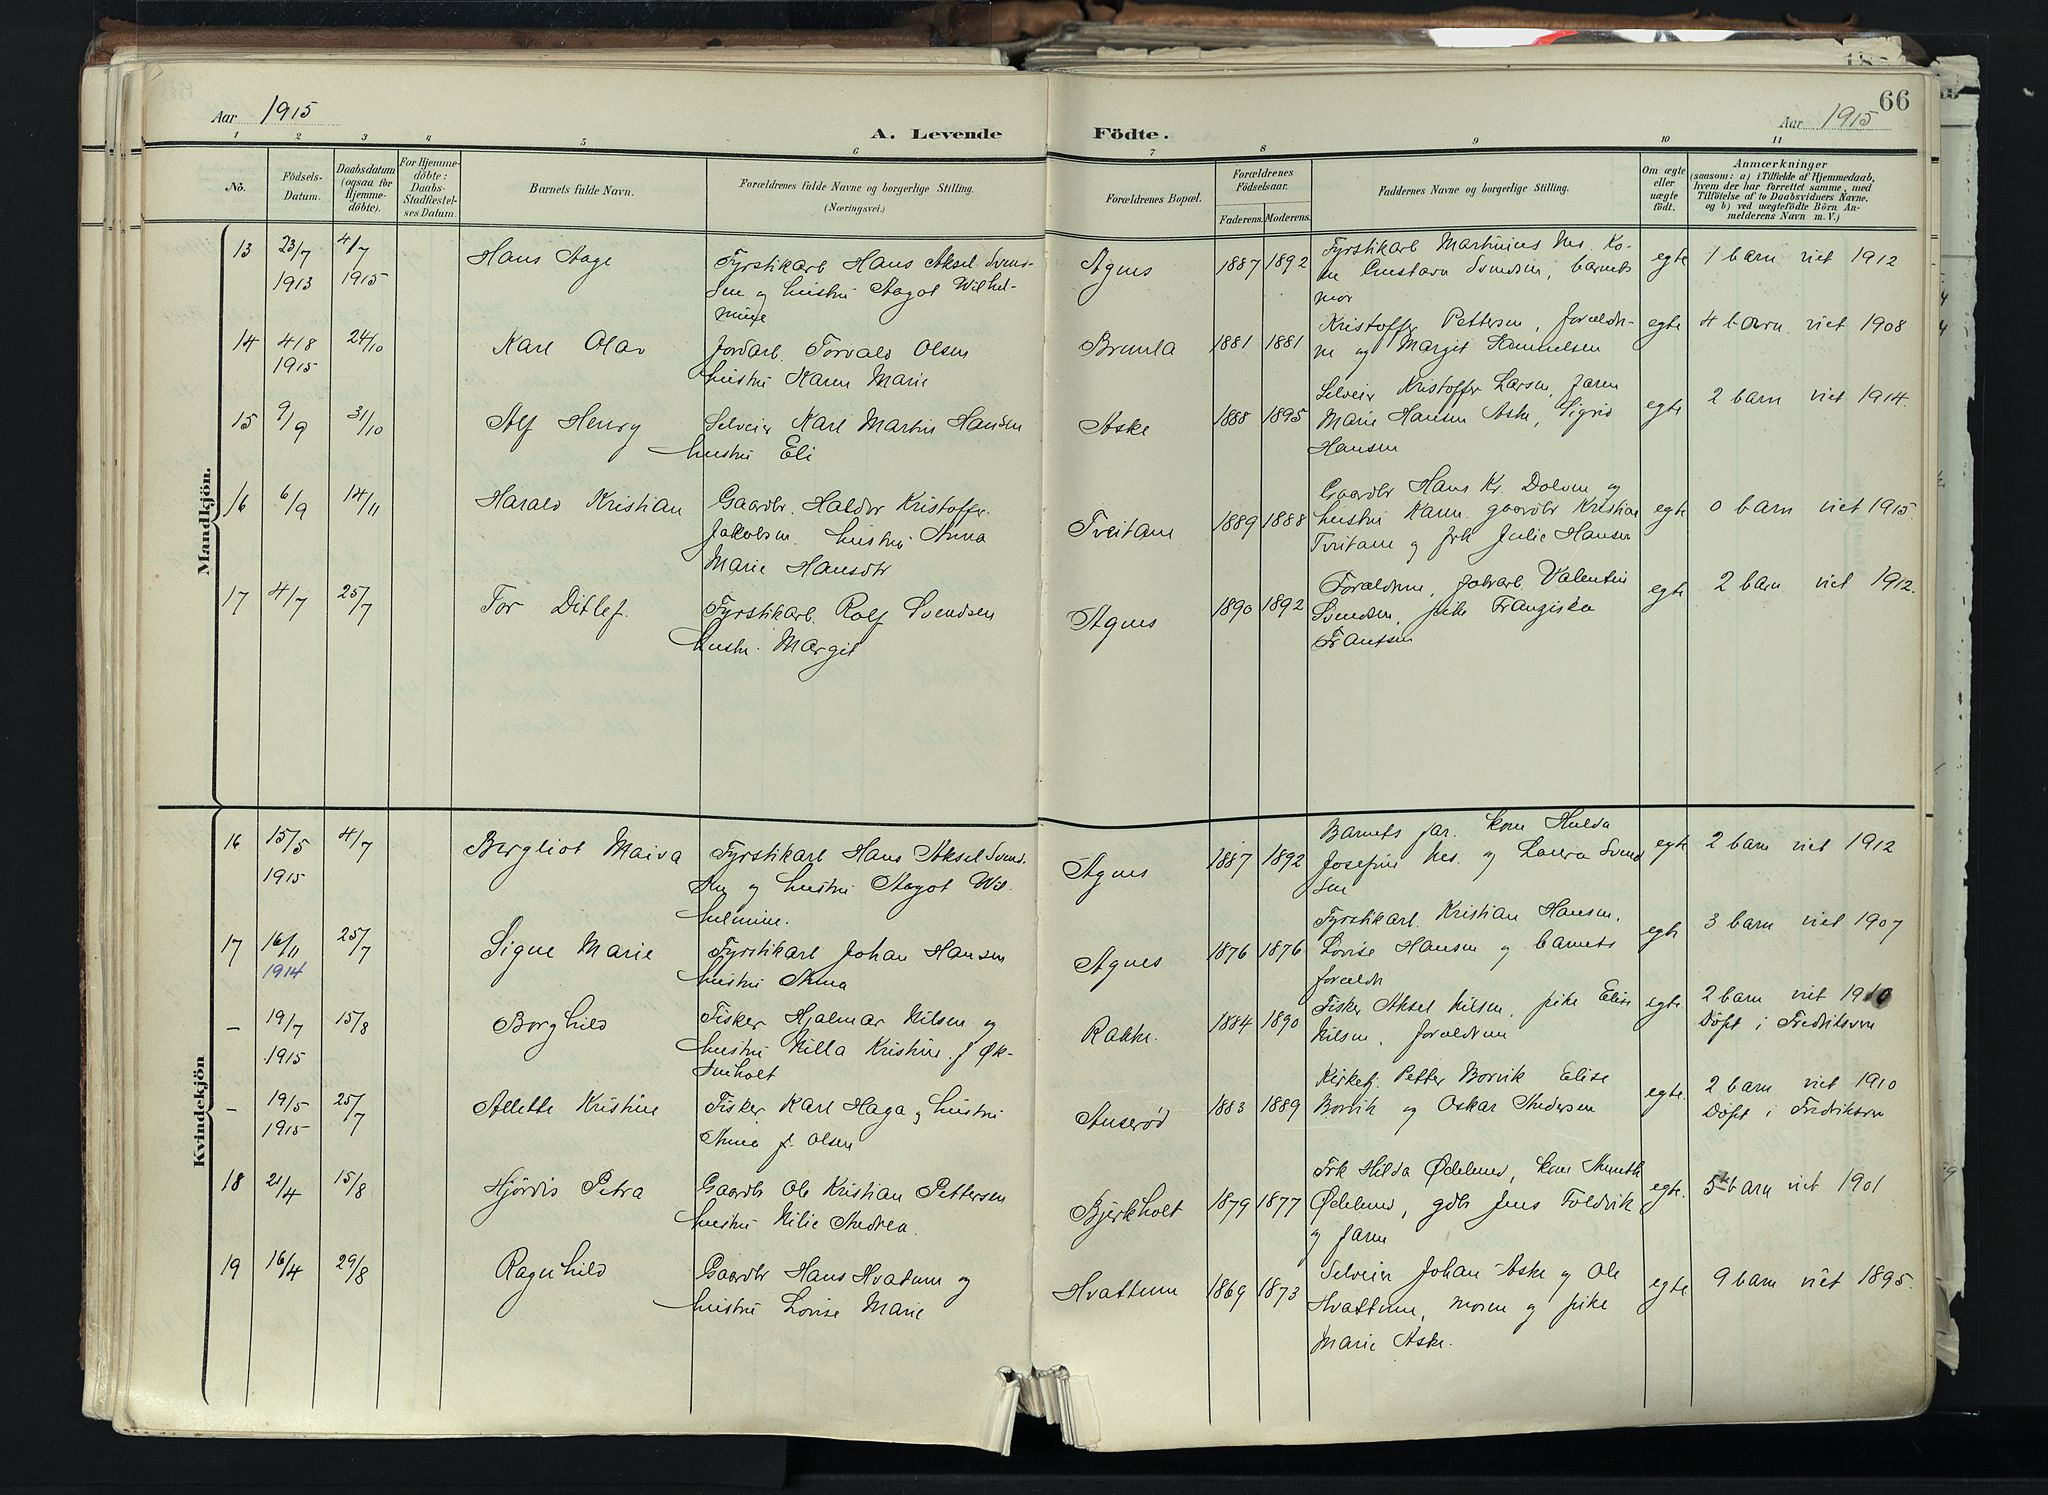 66
Aar 1915
A. Levende Födte.
Aar 1915
1 2 3 4 5 6 7 8 9 10 11
No.
Födsels-
Datum.
Daabsdatum
(ogsaa for
Hjemme-
döbte).
For Hjemme-
döbte:
Daabs-
Stadfæstel-
ses Datum.
Barnets fulde Navn.
Forældrenes fulde Navne og borgerlige Stilling.
(Næringsvei.)
Forældrenes Bopæl.
Forældrenes
Födselsaar.
Faderens. Moderens.
Faddernes Navne og borgerlige Stilling.
Om ægte
eller
uægte
födt.
Anmærkninger
(saasom: a) i Tilfælde af Hjemmedaab,
hvem der har forrettet samme, med
Tilföielse af to Daabsvidners Navne,
og b) ved uægtefödte Börn An-
melderens Navn m. V.)
Mandkjön.
13 23/7 1913 4/7 1915
Hans Aage
Fyrstikarb Hans Aksel Svend-
sen og hustru Aagot Wilhel-
mine
Agnes
1887 1892
Fyrstikarb Martinius Nes. Ko-
ne Gustava Svendsen, barnets
mor
egte
1 barn viet 1912
14 4/8 1915 24/10
Karl Olav
Jordarb. Torvald Olsen
hustru Karen Marie
Brunla
1881 1881
Kristoffer Pettersen, foreldre-
ne og Margit
egte
4 barn viet 1908
15 9/9 31/10
Alf Henry
Selveier Karl Martin Hansen
hustru Eli
Aske
1888 1895
Selveier Kristoffer Larsen, faren
Marie Hansen Aske, Sigrid
Hansen
egte
2 barn viet 1914.
16 6/9 14/11
Harald Kristian
Gaardbr. Haldor Kristoffer
Jakobsen. hustru Anna
Marie Hansdtr
Tveitane
1889 1888
Gaardbr Hans Kr. Dolven og
hustru Karen. gaardbr Kristian
Tveitane og frk Julie Hansen
egte
0 barn viet 1915.
17 4/7 25/7
Tor Ditlef
Fyrstikarb. Rolf Svendsen
hustr. Margit
Agnes
1890 1892
Forældrene, Valentin
Svendsen, pike Franziska
Frantsen
egte
2 barn viet 1912.
Kvindekjön
16 15/5 1915 4/7
Bergliot Maiva
Fyrstikarb Hans Aksel Svend-
sen og hustru Aagot Wil-
helmine.
Agnes
1887 1892
Barnets far. kone Hulda
Josefine Nes. og Laura Svend
sen
egte
2 barn viet 1912
17 16/11 1914 25/7
Signe Marie
Fyrstikarb Johan Hansen
hustru Anna
Agnes
1876 1876
Fyrstikarb. Kristian Hansen.
Lovise Hansen og barnets
foreldr
egte
3 barn viet 1907
– 19/7 1915 15/8
Borghild
Fisker Hjalmar Nilsen og
hustru Milla Kristine f Øk-
senholt
Rakke.
1884 1890
Fisker Aksel Nilsen, pike Elise
Nilsen, foreldrene
egte.
2 barn viet 1910
Døpt i Fredriksvern
– 19/5 1915 25/7
Alette Kristine
Fisker Karl Haga og hustru
Anna f. Olsen
Anserød
1883 1889
Kirketj. Petter Borvik Elise
Borvik og Oskar Andersen
egte.
2 barn viet 1910
Døpt i Fredriksvern
18 21/4 15/8
Hjördis Petra
Gaardbr Ole Kristian Pettersen
hustru Nilie Andrea.
Bjerkholt
1879 1877
Frk Hilda Ødelund, kone Anneth
Ødelund, gdbr Jens Foldvik
og faren
egte.
5 barn viet 1901
19 16/4 29/8
Ragnhild
Gaardbr Hans Hvatum og
hustru Lovise Marie
Hvattum
1869 1873
Selveier Johan Aske og Ole
Hvattum, moren og pike
Marie Aske.
egte
9 barn viet 1895.